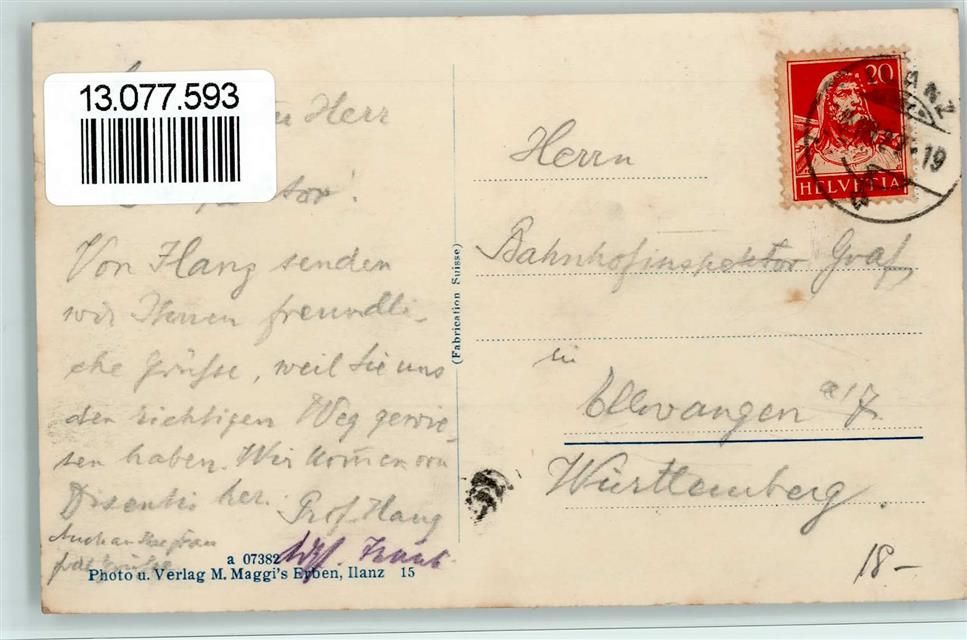 13.077.593
Herr
Von Ilanz senden
wir Ihnen freundli-
che Grüsse, weil Sie uns
den richtigen Weg gewie-
sen haben. Wir kommen von
Disentis her.
Prof. Haug
Auch an Ihre Frau
a 07382
Photo u. Verlag M. Maggi's Erben, Ilanz 15
(Fabrication Suisse)
20
HELVETIA
Herrn
Bahnhofinspektor Graf,
in
Ellwangen a/J.
Württemberg.
18-